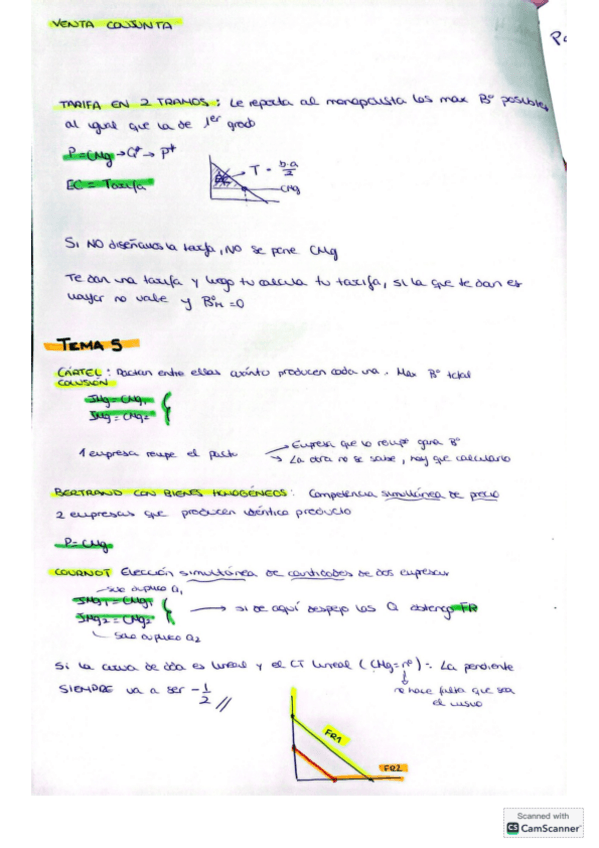 VENTA CONJUNTA
TARIFA EN 2 TRAMOS: Le reporta al monopolista los max Bº posibles,
al igual que la de 1er grado
P=CMg → Q* → P*
EC = Tarifa
T = b·a/2
CMg
Si NO diseñamos la tarifa, NO se pone CMg
Te dan una tarifa y luego tu calcula tu tarifa, si la que te dan es
mayor no vale y BºM=0
TEMA 5
CÁRTEL: Pactan entre ellas cuánto producen cada una. Max Bº total
COLUSIÓN
IMg = CMg1
IMg = CMg2
1 empresa rompe el pacto
Empresa que lo rompe gana Bº
La otra no se sabe, hay que calcularlo
BERTRAND CON BIENES HOMOGÉNEOS: Competencia simultánea de precio
2 empresas que producen idéntico producto
P=CMg
COURNOT Elección simultánea de cantidades de dos empresas
solo duplico Q1
IMg1 = CMg1
IMg2 = CMg2
→ si de aquí despejo las Q obtengo FR
solo duplico Q2
Si la curva de dda es lineal y el CT lineal (CMg=nº): La pendiente
SIEMPRE va a ser -1/2 //
no hace falta que sea
el mismo
FR1
FR2
Scanned with
CS CamScanner